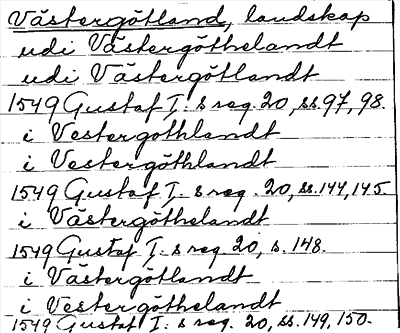 Västergötland, landskap
udi Västergöthelandt
udi Västergötlandt
1549 Gustaf I:s reg. 20, ss. 97, 98.
i Vestergothlandt
i Vestergöthlandt
1549 Gustaf I:s reg. 20, ss. 144, 145.
i Västergöthelandt
1549 Gustaf I:s reg. 20, s. 148.
i Västergötlandt
i Vestergöthelandt
1549 Gustaf I:s reg. 20, ss. 149, 150.